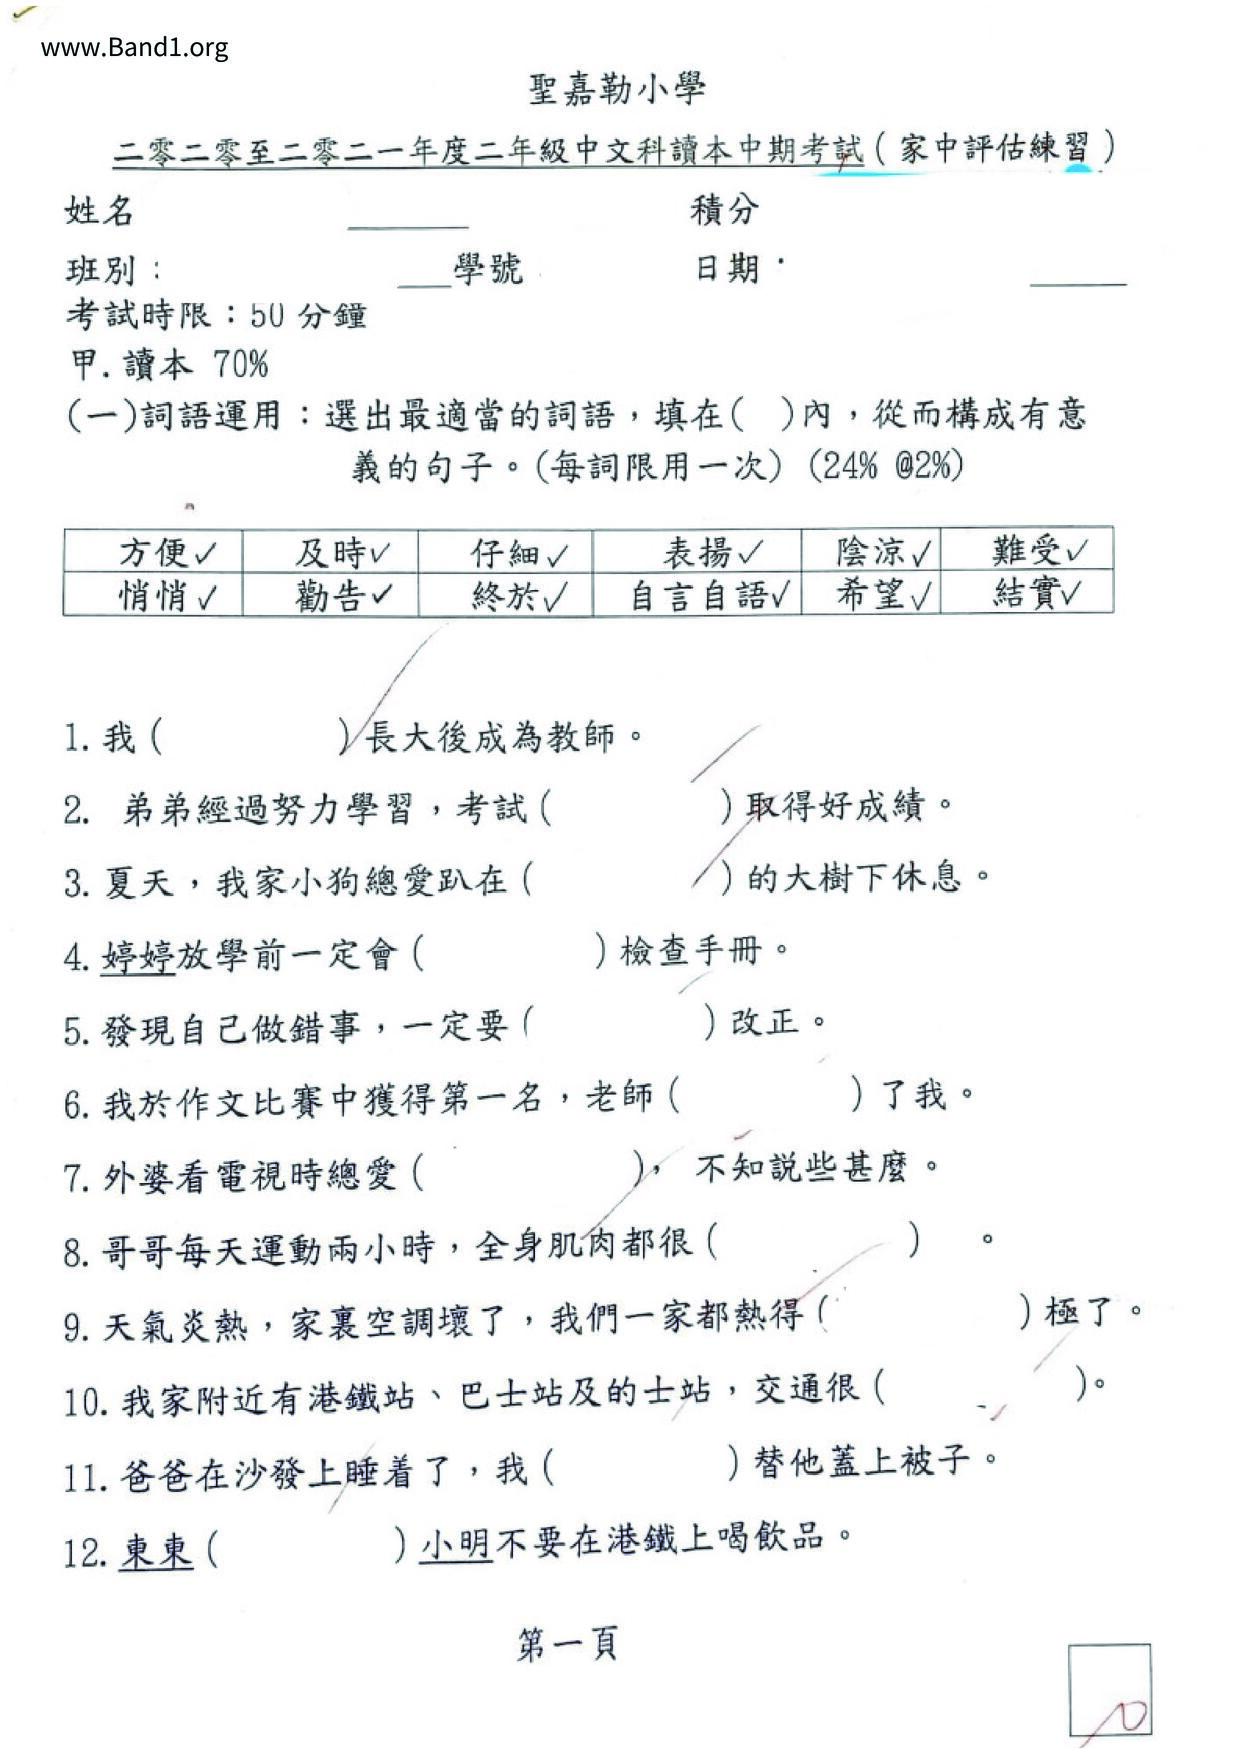 www.Band1.org
聖嘉勒小學
二零二零至二零二一年度二年級中文科讀本中期考試（家中評估練習）
姓名 ______ 積分
班別： ___學號 日期 ______
考試時限：50 分鐘
甲. 讀本 70%
(一)詞語運用：選出最適當的詞語，填在( )內，從而構成有意
義的句子。(每詞限用一次) (24% @2%)
方便✓ 及時✓ 仔細✓ 表揚✓ 陰涼✓ 難受✓
悄悄✓ 勸告✓ 終於✓ 自言自語✓ 希望✓ 結實✓
1. 我 ( ) 長大後成為教師。
2. 弟弟經過努力學習，考試 ( ) 取得好成績。
3. 夏天，我家小狗總愛趴在 ( ) 的大樹下休息。
4. 婷婷放學前一定會 ( ) 檢查手冊。
5. 發現自己做錯事，一定要 ( ) 改正。
6. 我於作文比賽中獲得第一名，老師 ( ) 了我。
7. 外婆看電視時總愛 ( )， 不知說些甚麼。
8. 哥哥每天運動兩小時，全身肌肉都很 ( ) 。
9. 天氣炎熱，家裏空調壞了，我們一家都熱得 ( ) 極了。
10. 我家附近有港鐵站、巴士站及的士站，交通很 ( )。
11. 爸爸在沙發上睡着了，我 ( ) 替他蓋上被子。
12. 東東 ( ) 小明不要在港鐵上喝飲品。
第一頁